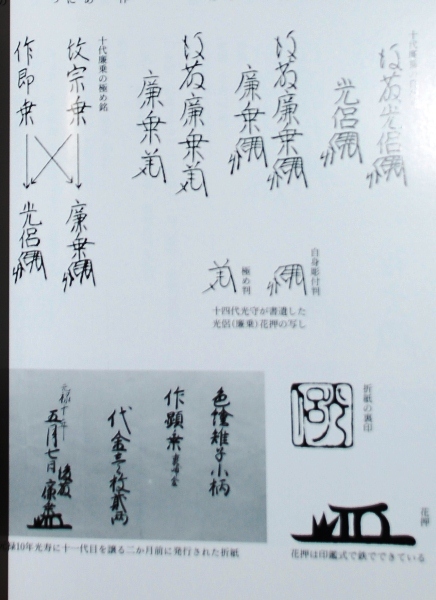 十代廉乗
後藤光侶
光侶
後藤廉乗
廉乗
後藤廉乗
廉乗
十代廉乗の極め銘
故宗乗
作即乗
廉乗
光侶
自身彫付判
極め判
十四代光守が書遺した
光侶(廉乗)花押の写し
折紙の裏印
色絵雉子小柄
作顕乗
代金三枚貳両
元禄十年
五月七日
後藤
廉乗
花押
禄10年光寿に十一代目を譲る二か月前に発行された折紙
花押は印鑑式で鉄でできている